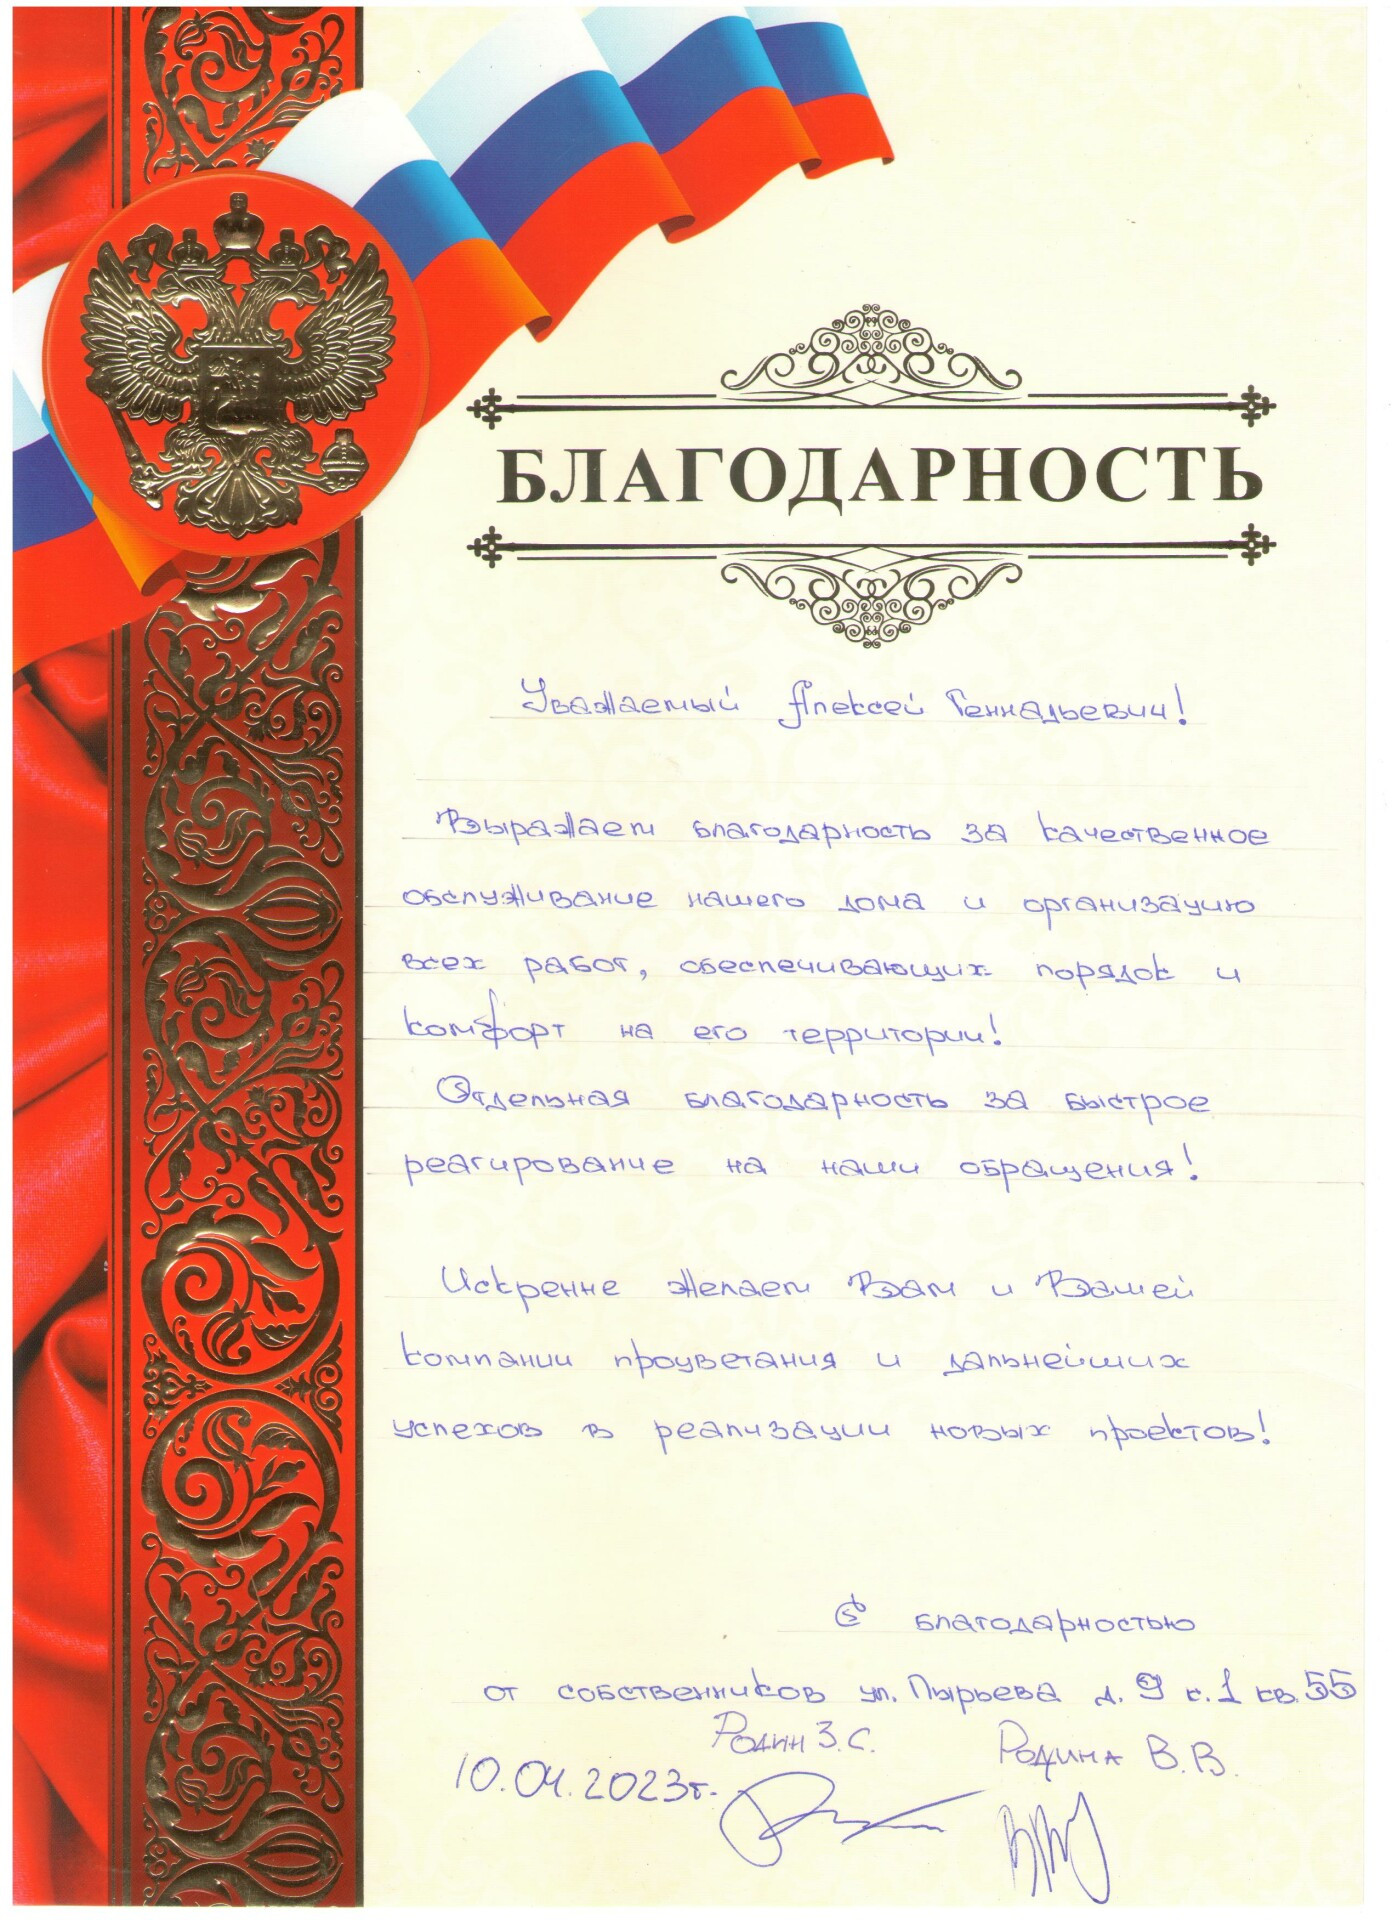 БЛАГОДАРНОСТЬ
Уважаемый Алексей Геннадьевич!
Выражаем благодарность за качественное
обслуживание нашего дома и организацию
всех работ, обеспечивающих порядок и
комфорт на его территории!
Отдельная благодарность за быстрое
реагирование на наши обращения!
Искренне желаем Вам и Вашей
компании процветания и дальнейших
успехов в реализации новых проектов!
С благодарностью
от собственников ул. Пырьева д. 9 к. 1 кв. 55
Родин З.С. Родина В.В.
10.04.2023г.